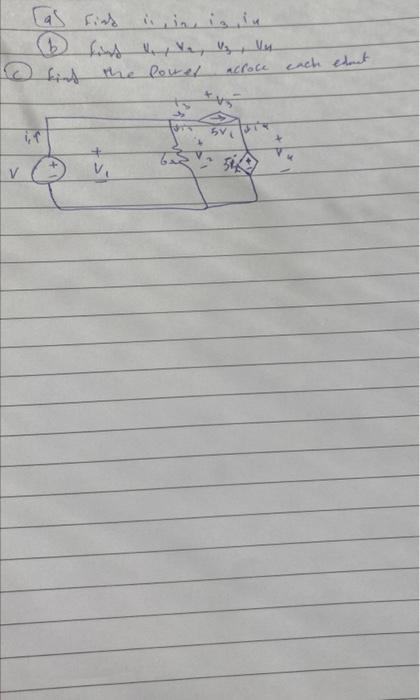 (a) Find i1, i2, i3, i4
(b) Find V1, V2, V3, V4
(c) Find the Power across each
i3 + V3 -
i1 i2 5V1 i4
+ + +
V V1 6Ω V2 V4
- - -